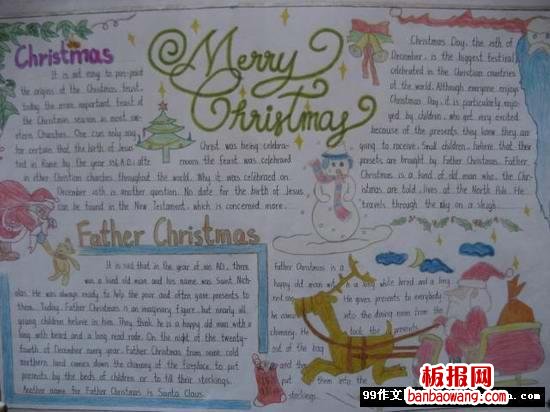 Christmas
It is not easy to pin-point
the origins of the Christmas feast,
today the most important feast of
the Christmas season in most wes-
tern Churches. One can only say
for certain that the birth of Jesus
in Rome by the year
in other Christian churches throughout the world. Why it was celebrated on
December 25th is another question. No date for the birth of Jesus
can be found in the New Testament, which is concerned more
Merry
Christmas
Christ was being celebra-
the feast was celebrated
Christmas Day, the 25th of
December, is the biggest festival
celebrated in the Christian countries
of the world. Although everyone enjoys
Christmas Day, it is particularly enjo-
yed by children, who get very excited
because of the presents they know they are
going to receive. Small children believe that their
presents are brought by Father Christmas. Father
Christmas is a kind of old man who, the Chil-
dren are told, lives at the North Pole. He
travels through the sky on a sleigh
Father Christmas
It is said that in the year of 300 A.D., there
was a kind old man and his name was Saint. Nich-
olas. He was always ready to help the poor and often gave presents to
them. Today, Father Christmas is an imaginary figure, but nearly all
young children believe in him. They think he is a happy old man with a
long white beard and a long read robe. On the night of the twenty-
fourth of December every year, Father Christmas from some cold
northern land comes down the chimney of the fireplace to put
presents by the beds of children or to fill their stockings.
Another name for Father Christmas is Santa Claus.
Father Christmas is a
happy old man with a long white beard and a long
red He gives presents to everybody
he comes into the dining room from the
chimney. He took the presents
out of the bag
and then put them into the
stockings.
99作文
板报网
banbaowang.com